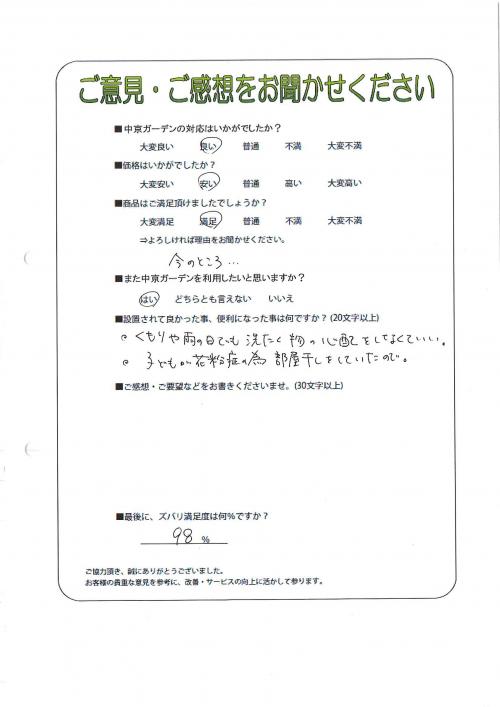 ご意見・ご感想をお聞かせください
■中京ガーデンの対応はいかがでしたか？
大変良い 良い 普通 不満 大変不満
■価格はいかがでしたか？
大変安い 安い 普通 高い 大変高い
■商品はご満足頂けましたでしょうか？
大変満足 満足 普通 不満 大変不満
⇒よろしければ理由をお聞かせください。
今のところ...
■また中京ガーデンを利用したいと思いますか？
はい どちらとも言えない いいえ
■設置されて良かった事、便利になった事は何ですか？(20文字以上)
・くもりや雨の日でも洗たく物の心配をしなくていい。
・子どもが花粉症の為部屋干しをしていたので。
■ご感想・ご要望などをお書きくださいませ。(30文字以上)
■最後に、ズバリ満足度は何％ですか？
98 %
ご協力頂き、誠にありがとうございました。
お客様の貴重な意見を参考に、改善・サービスの向上に活かして参ります。